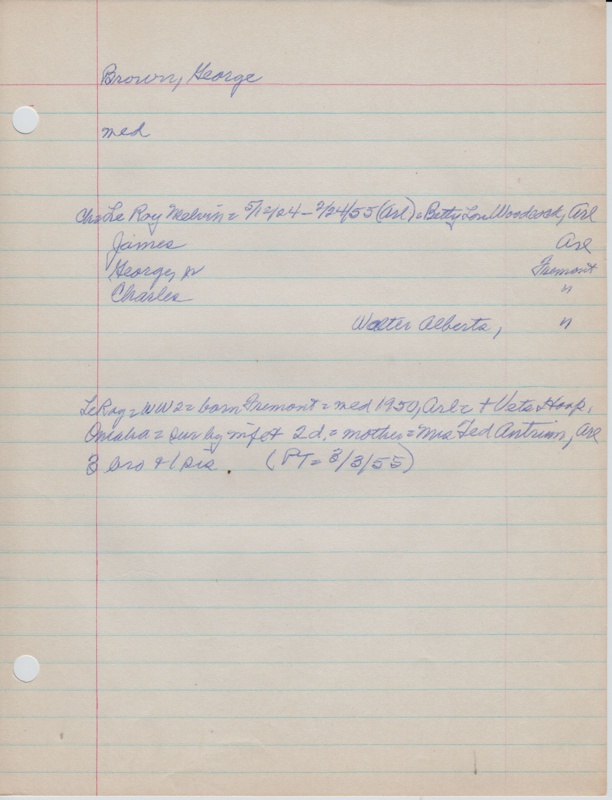 Brown, George
med
Chs Le Roy Melvin = 5/12/24 - 2/24/55 (Arl) = Betty Lou Woodcock, Arl
James Arl
George, Jr Fremont
Charles "
Walter Alberts, "
LeRoy = WW2 = born Fremont = med 1950, Arl = + Vets Hosp,
Omaha = sur by wife + 2 d. = mother = Mrs Ted Antrim, Arl
3 bro + 1 sis. (PT = 3/3/55)